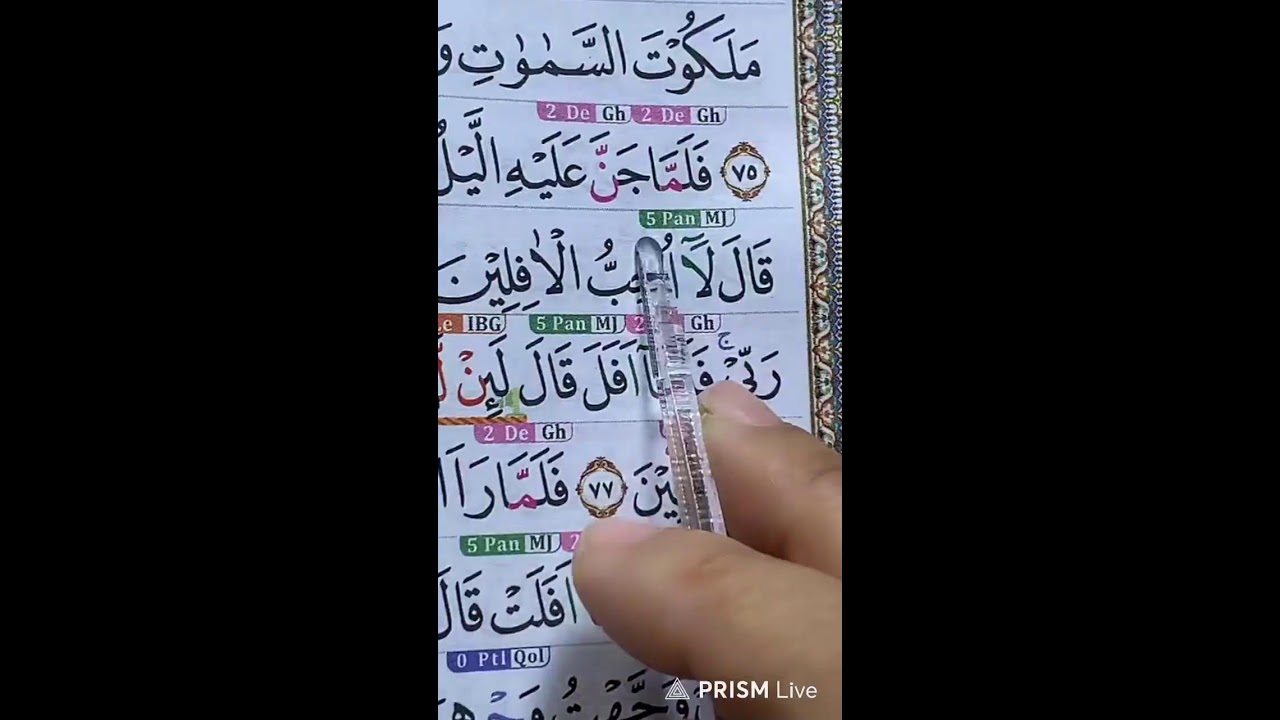 مَلَكُوْتَ السَّمٰوٰتِ
2 De Gh 2 De Gh
٧٥ فَلَمَّا جَنَّ عَلَيْهِ الَّيْلُ
5 Pan MJ
قَالَ لَآ اُحِبُّ الْاٰفِلِيْنَ
IBG 5 Pan MJ Gh
رَبِّيْۚ اَفَلَ قَالَ لَىِٕنْ
2 De Gh
٧٧ فَلَمَّا رَاَ
5 Pan MJ
اَفَلَتْ قَالَ
0 Ptl Qol
PRISM Live